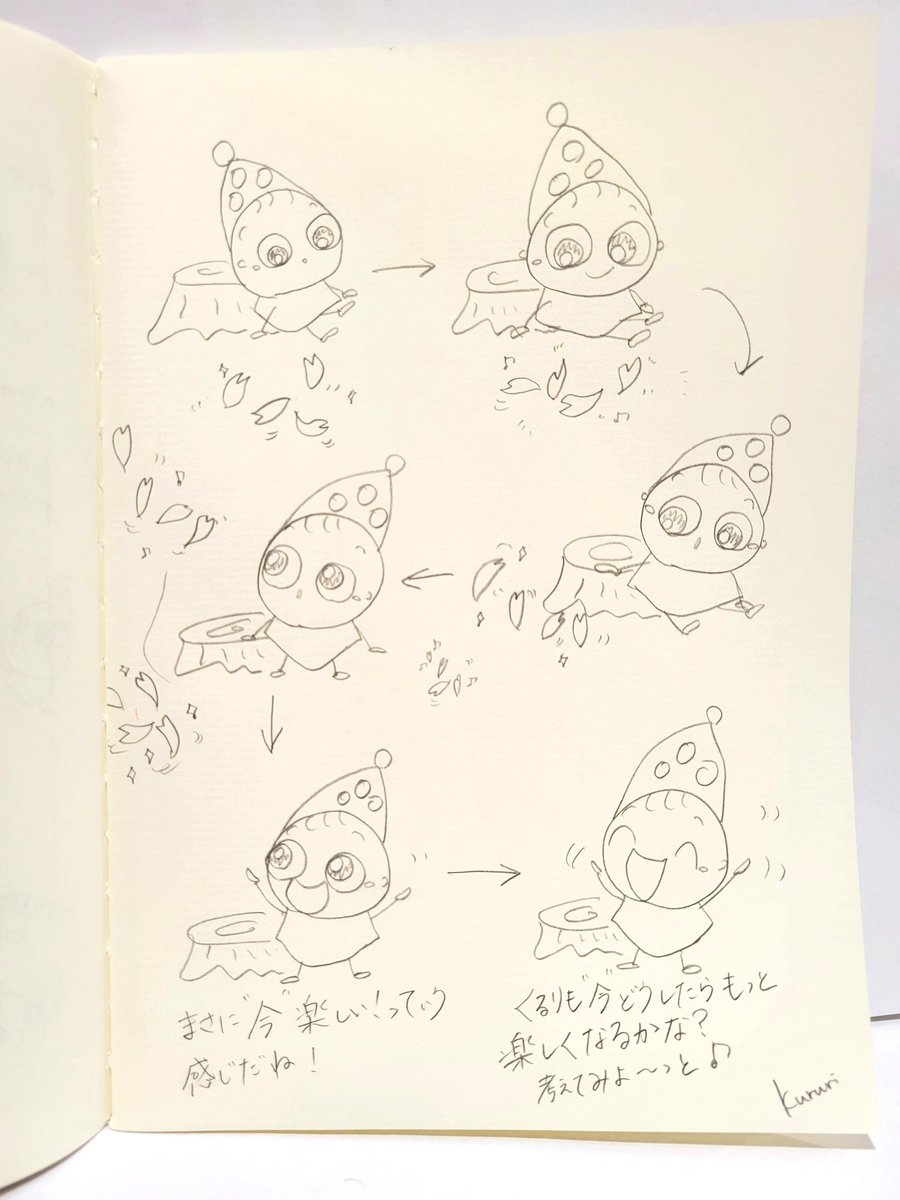 まさに"今"楽しい!っていう
感じだね!
くるりも"今"どうしたらもっと
楽しくなるかな?
考えてみよ〜っと♪
Kururi